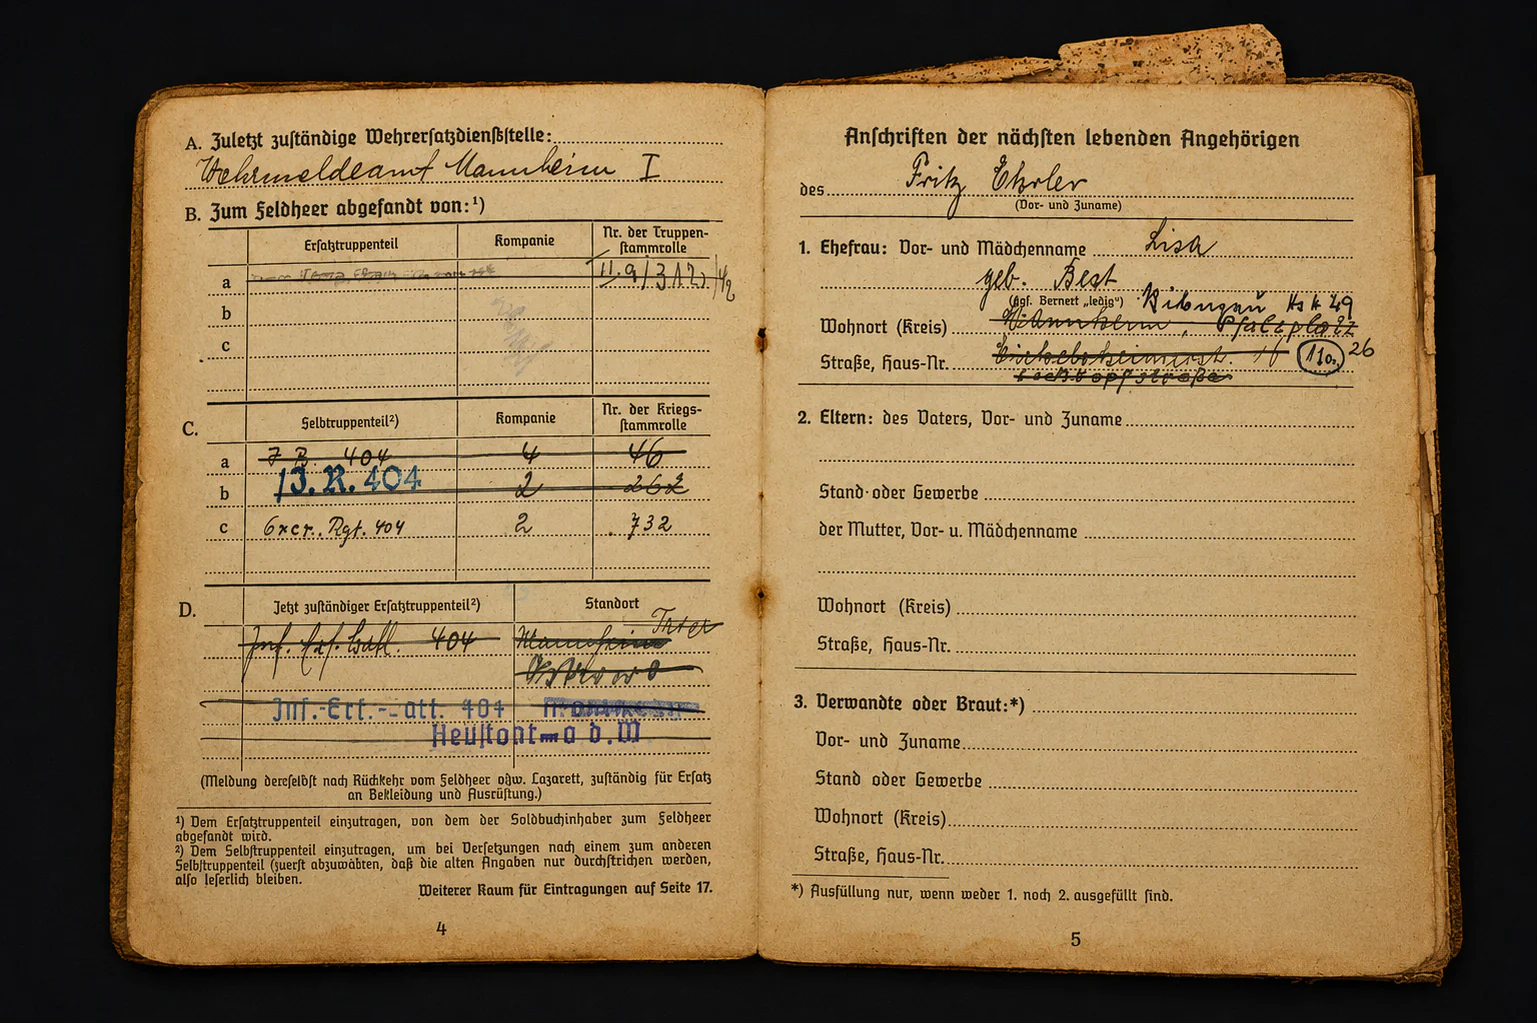 A. Zuletzt zuständige Wehrersatzdienststelle:
Wehrmeldeamt Mannheim I
B. Zum Feldheer abgesandt von:¹)
Ersatztruppenteil Kompanie Nr. der Truppen-
stammrolle
a
b
c
C. Feldtruppenteil²) Kompanie Nr. der Kriegs-
stammrolle
a J. B. 404 4 46
b J. R. 404 2 262
c Gren. Rgt. 404 2 732
D. Jetzt zuständiger Ersatztruppenteil²) Standort
Inf. Ers. Batl. 404 Mannheim Trier
Inf.-Ers.-Batt. 404
a d. W
(Meldung dereselbst nach Rückkehr vom Feldheer oder Lazarett, zuständig für Ersatz
an Bekleidung und Ausrüstung.)
¹) Dem Ersatztruppenteil einzutragen, von dem der Soldbuchinhaber zum Feldheer
abgesandt wird.
²) Dem Selbstruppenteil einzutragen, um bei Versetzungen nach einem zum anderen
Selbstruppenteil (zuerst abzuwäbten, daß die alten Angaben nur durchstrichen werden,
also leserlich bleiben.
Weiterer Raum für Eintragungen auf Seite 17.
4
Anschriften der nächsten lebenden Angehörigen
des Fritz Ehrler
(Vor- und Zuname)
1. Ehefrau: Vor- und Mädchenname Lisa
geb. Best
(ggf. Vermerk „ledig“) 49
Wohnort (Kreis) Mannheim, Pfalzplatz
Straße, Haus-Nr. 16 110. 26
2. Eltern: des Vaters, Vor- und Zuname
Stand oder Gewerbe
der Mutter, Vor- u. Mädchenname
Wohnort (Kreis)
Straße, Haus-Nr.
3. Verwandte oder Braut:*)
Vor- und Zuname
Stand oder Gewerbe
Wohnort (Kreis)
Straße, Haus-Nr.
*) Ausfüllung nur, wenn weder 1. noch 2. ausgefüllt sind.
5